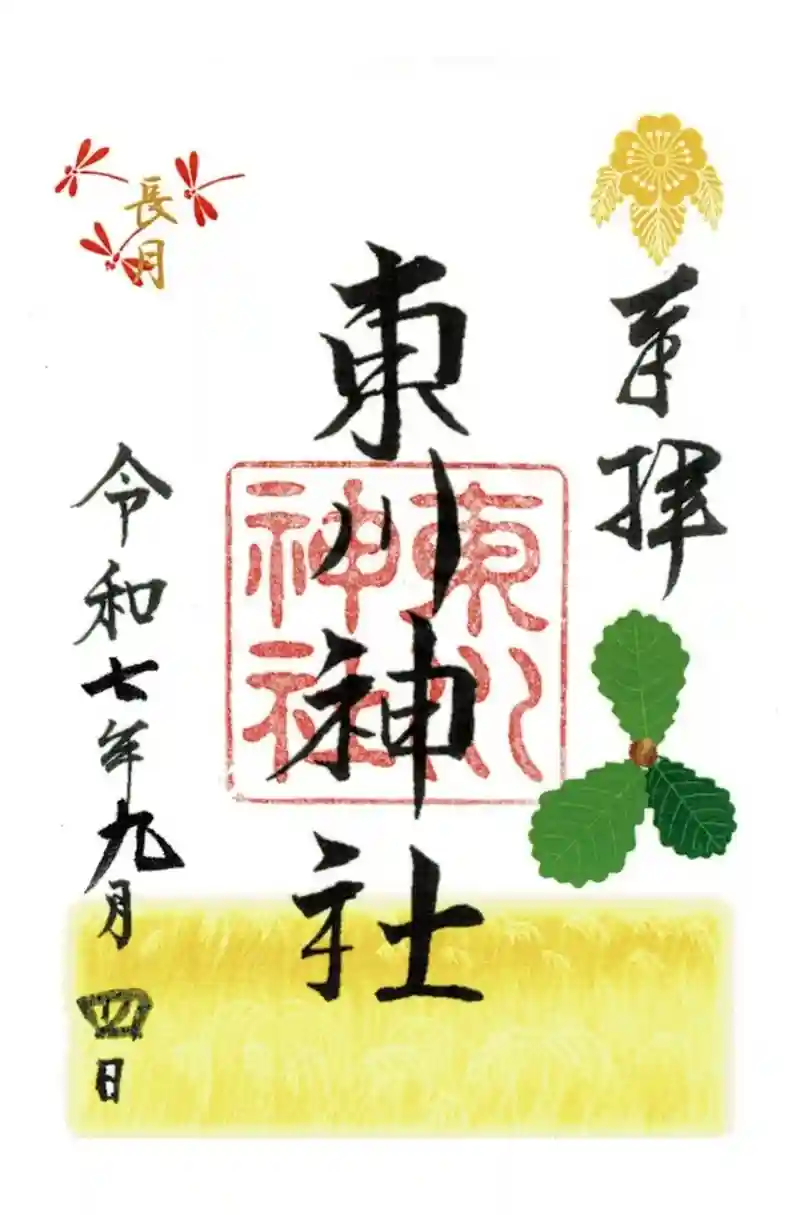 奉拝
東川神社
東川神社
長月
令和七年九月四日